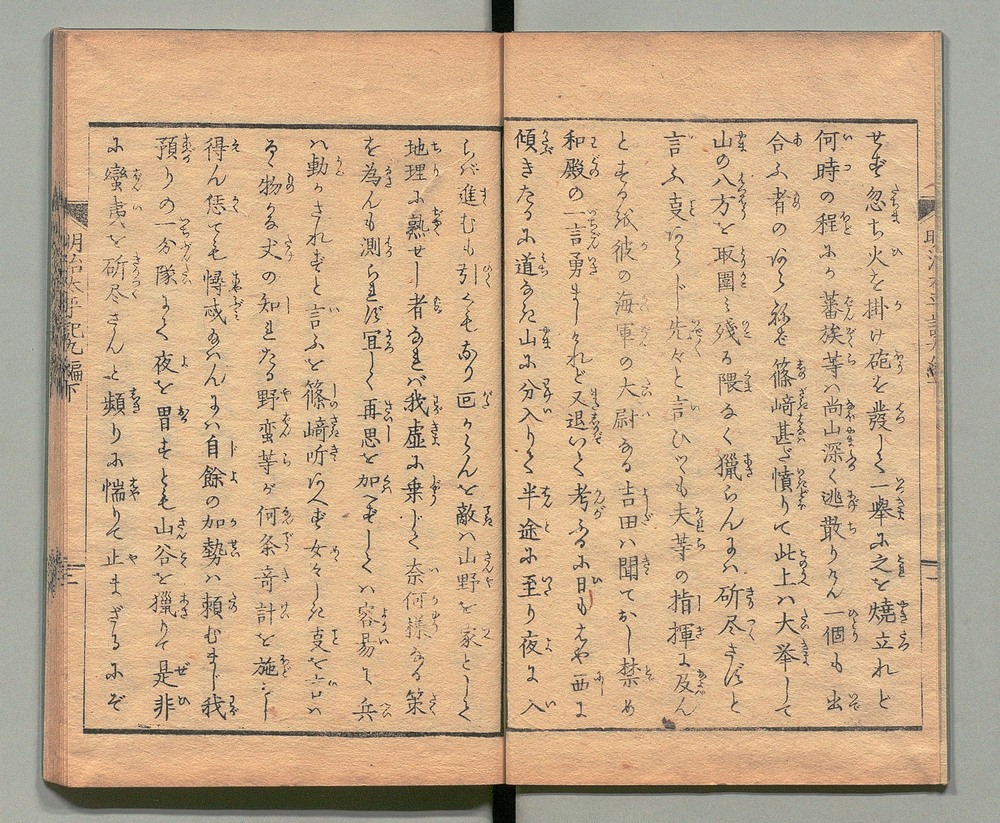 せず忽ち火を掛け砲を發して一舉に之を燒立れど
何時の程にか蕃族等ハ尚山深く逃散りけん一個も出
合ふ者のあらねば篠﨑甚だ憤りて此上ハ大挙して
山の八方を取圍ミ残る隈なく獵らんにハ斫尽さずと
言ふ叓あらじ先々と言ひつゝも夫等の指揮に及ん
とする紙彼の海軍の大尉なる吉田ハ聞ておし禁め
和殿の一言勇ましけれど又退いて考るに日もはや西に
傾きたるに道なき山に分入りて半途に至り夜に入
らば進むも引くもなり回からんを敵ハ山野を家として
地理に熟せし者なれバ我虚に乗じて奈何様なる策
を為んも測られず冝しく再思を加へずしてハ容易く兵
ハ動かされずと言ふを篠﨑听あへず女々しき叓を言ハ
るゝ物かな丈の知れたる野蛮等が何条竒計を施こし
得ん恁ても憚戒なハんにハ自餘の加勢ハ頼むまじ我
預りの一分隊にて夜を冒すとも山谷を獵りて是非
に蠻夷を斫尽さんと頻りに惴りて止まざるにぞ
明治太平記九編下
二